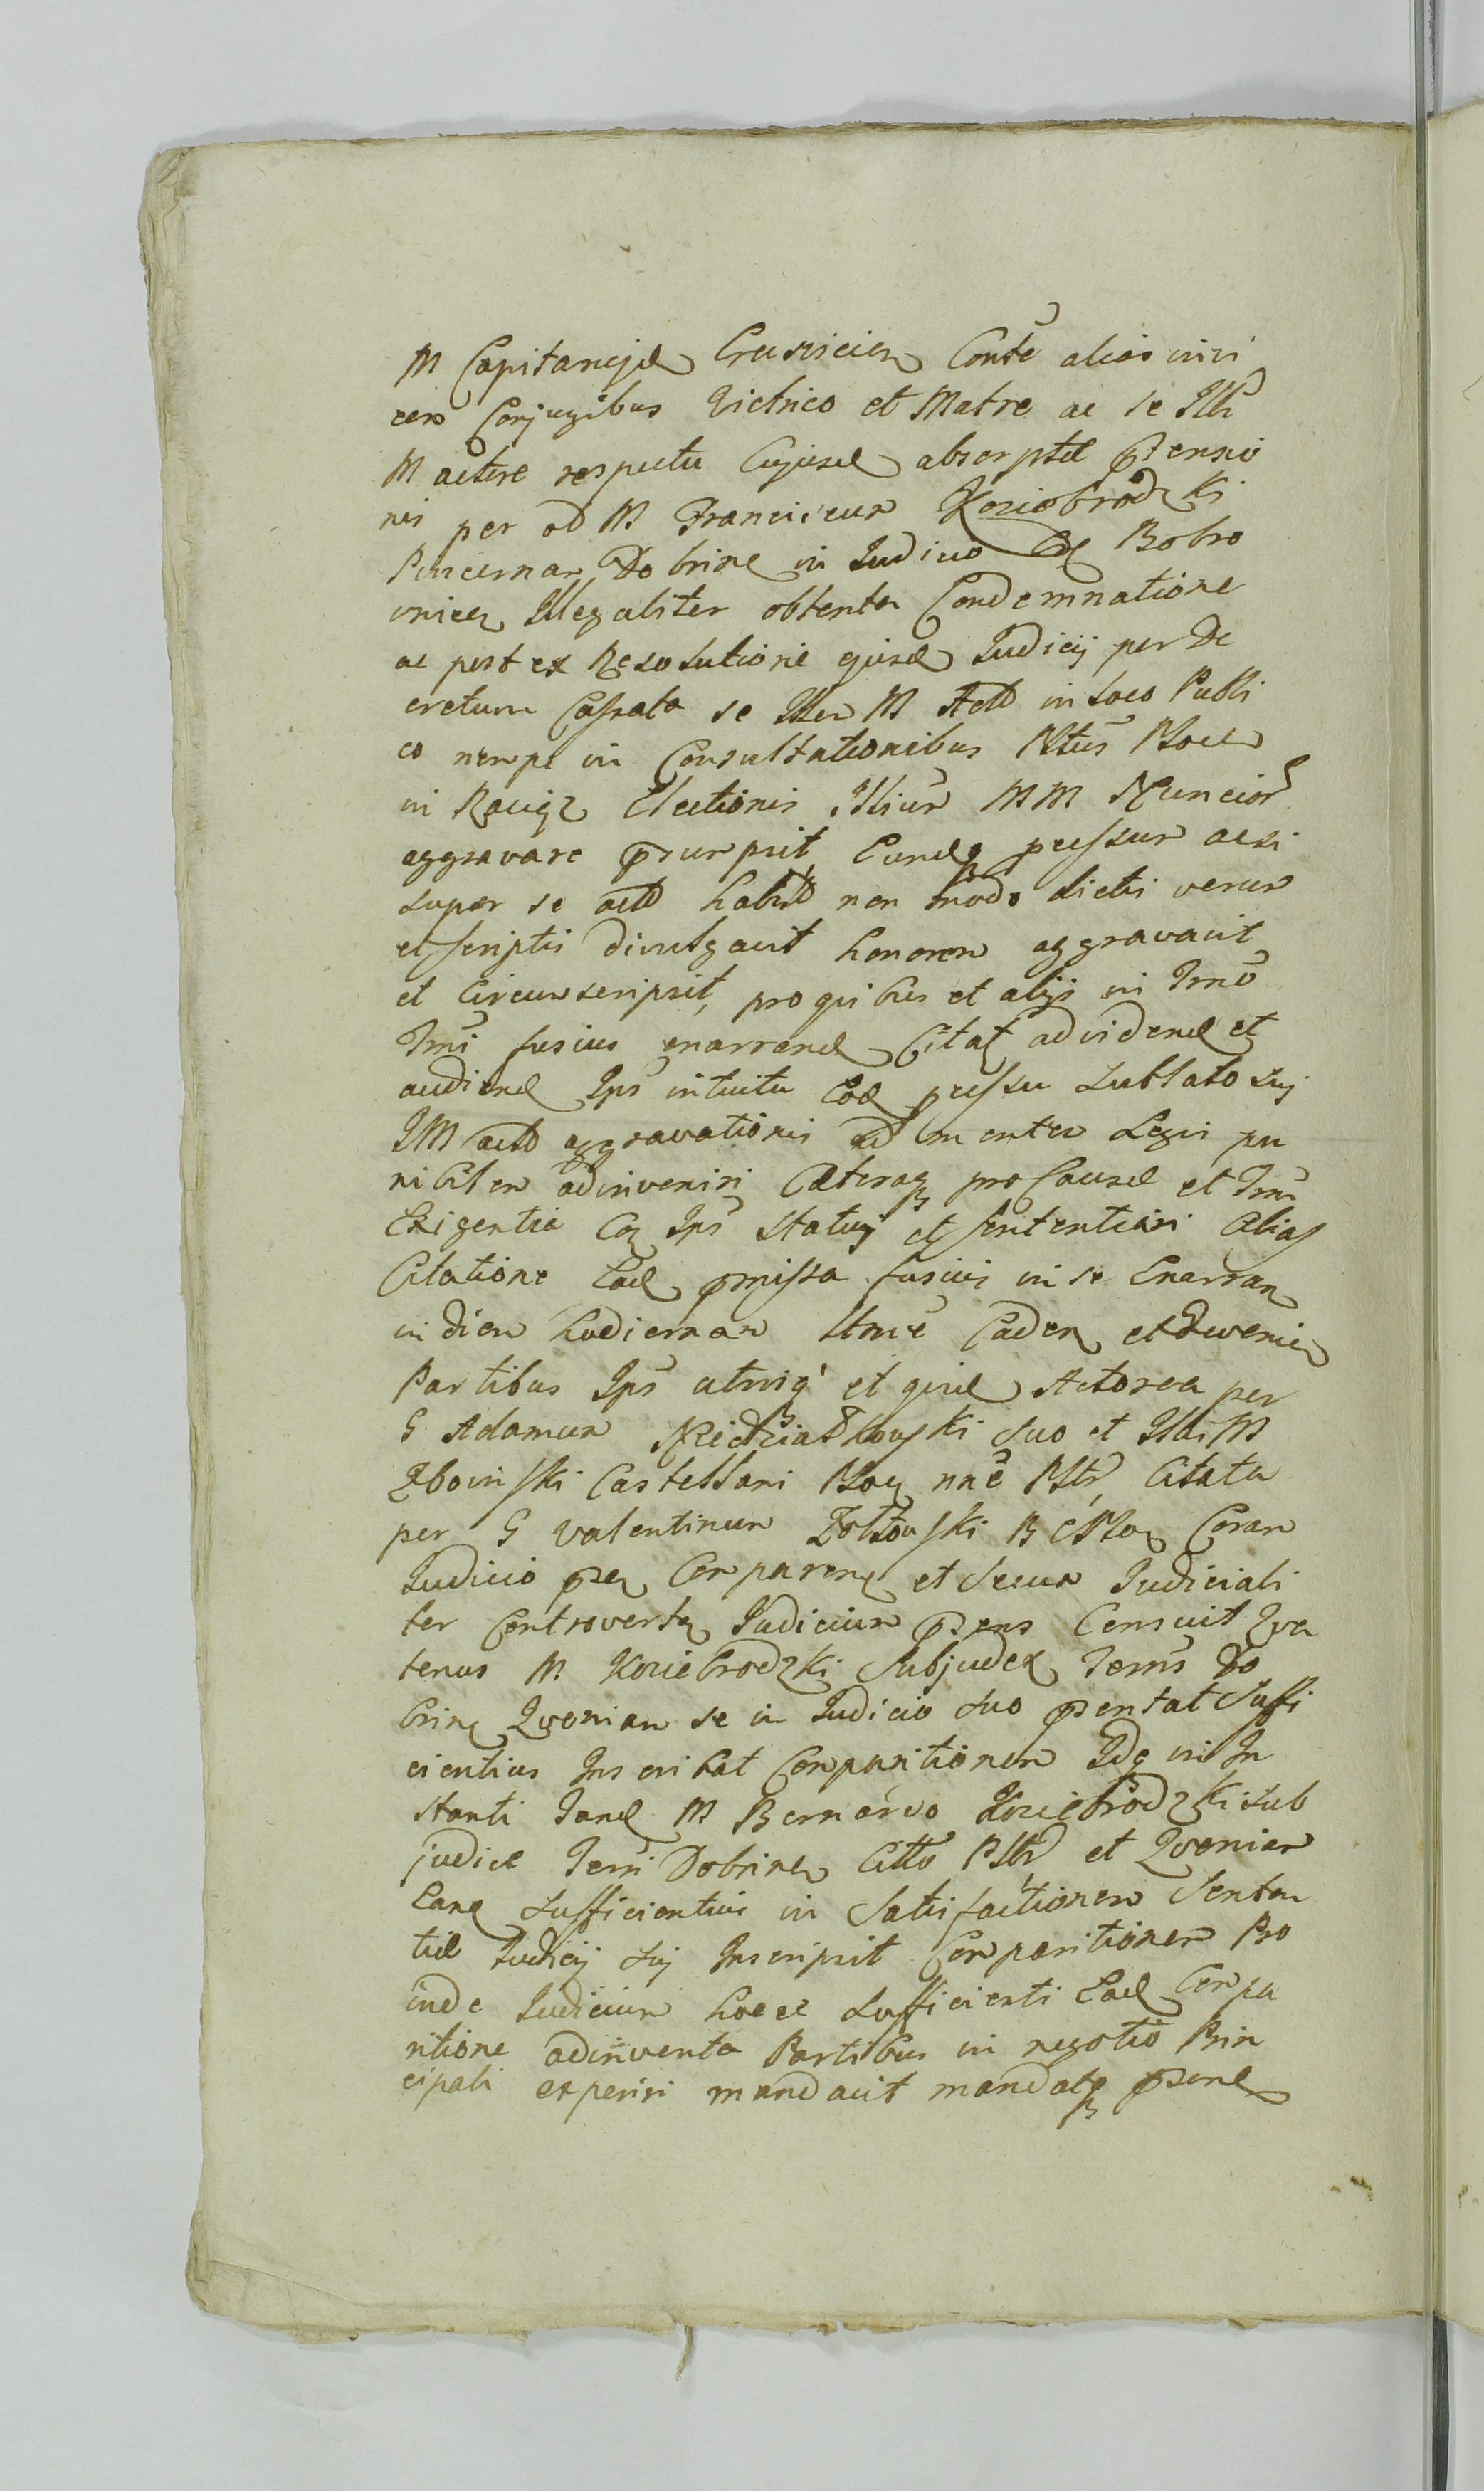 M Capitaneje Crusvicien Contē alias invi
cem Conjugibus Victrico et Matre ac se Illi
M actore respectu Cujusd absorptæ Pensio
nis per od M Franciscum Koziebrodzki
Pincernam Dobrinen in Judicio Cas Bobro
vnicen Illegaliter obtenta Condemnatione
ac post ex Resolutione ejusd Judicij per De
cretum Cassata se Illem M Actō in Loco Publi
co nempe in Consultationibus Pltūs Ploce
in Raciąz Electionis Illium MM Nuncior
aggravare præsumpsit Eundq pressum acsi
super se actō habitō non modo dictis verum
et scriptis divulgavit honorem aggravavit
et Circumscripsit, pro quibus et alijs in Trnō
Trni fusius enarrand Citat ad videnđ et
audiend Ips intuitu Eod pressu sublato suj
IM actō aggravationis ad mentem Legis pu
nibilem adinveniri Cæteraq pro Causæ et Trni
Exigentia Coz Ips statuj et sententiari Alias
Citatione Ead pmissa fusius in se Enarran
in diem hodiernam Itmē Caden et Eveniē
Partibus Ips utriqȝ et quid Actorea per
G Adamum Niedziałkowski suo et Illi M
Zboinski Castellani Ploc nnē Pltr, Citata
per G Valentinum Zołtowski B C Ploc Coram
Judicio pn Comparen et secum Judiciali
ter Controverten Judicium præsens Censuit Qva
tenus M Koziebrodzki Subjudex Terris Do
brin Qvoniam se in Judicio suo præsentat Suffi
cientius Inscribat Comparitionem Idq in In
stanti Tand M Bernardo Koziebrodzki Sub
judice Terri Dobrinen Cittō Pltr et Qvoniam
Eand sufficientius in Satisfactionem Senten
tiæ Judicij suj Inscripsit Comparitionem Pro
inde Judicium hocce sufficienti Ead Compa
ritione adinventa Partibus in negotio Prin
cipali experiri mandavit mandatq præsend